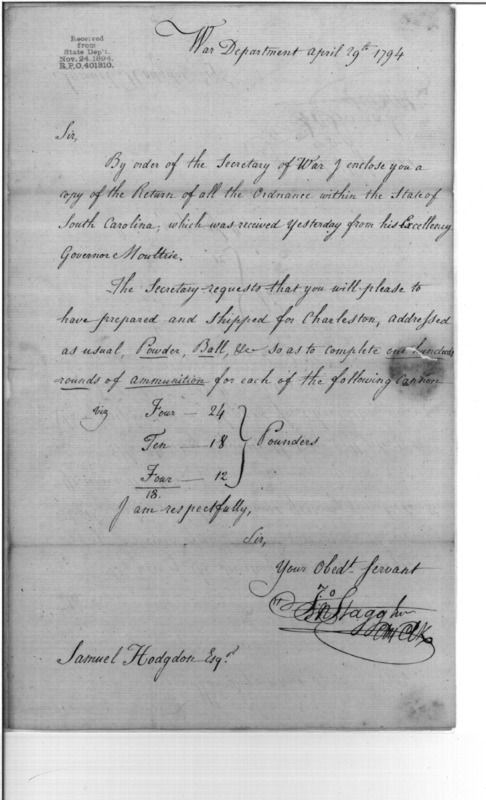 Received
from
State Dep't.
Nov. 24, 1894.
R.P.O. 401310.
War Department April 29th 1794
Sir,
By order of the Secretary of War I enclose you a
copy of the Return of all the Ordnance within the State of
South Carolina, which was received yesterday from his Excellency
Governor Moultrie.
The Secretary requests that you will please to
have prepared and shipped for Charleston, addressed
as usual, Powder, Ball, &c so as to complete one hundred
rounds of ammunition for each of the following cannon
viz Four — 24
Ten — 18 } Pounders
Four — 12
18.
I am respectfully,
Sir,
Your Obedt. Servant
Jno Stagg Junr
Samuel Hodgdon Esqr.